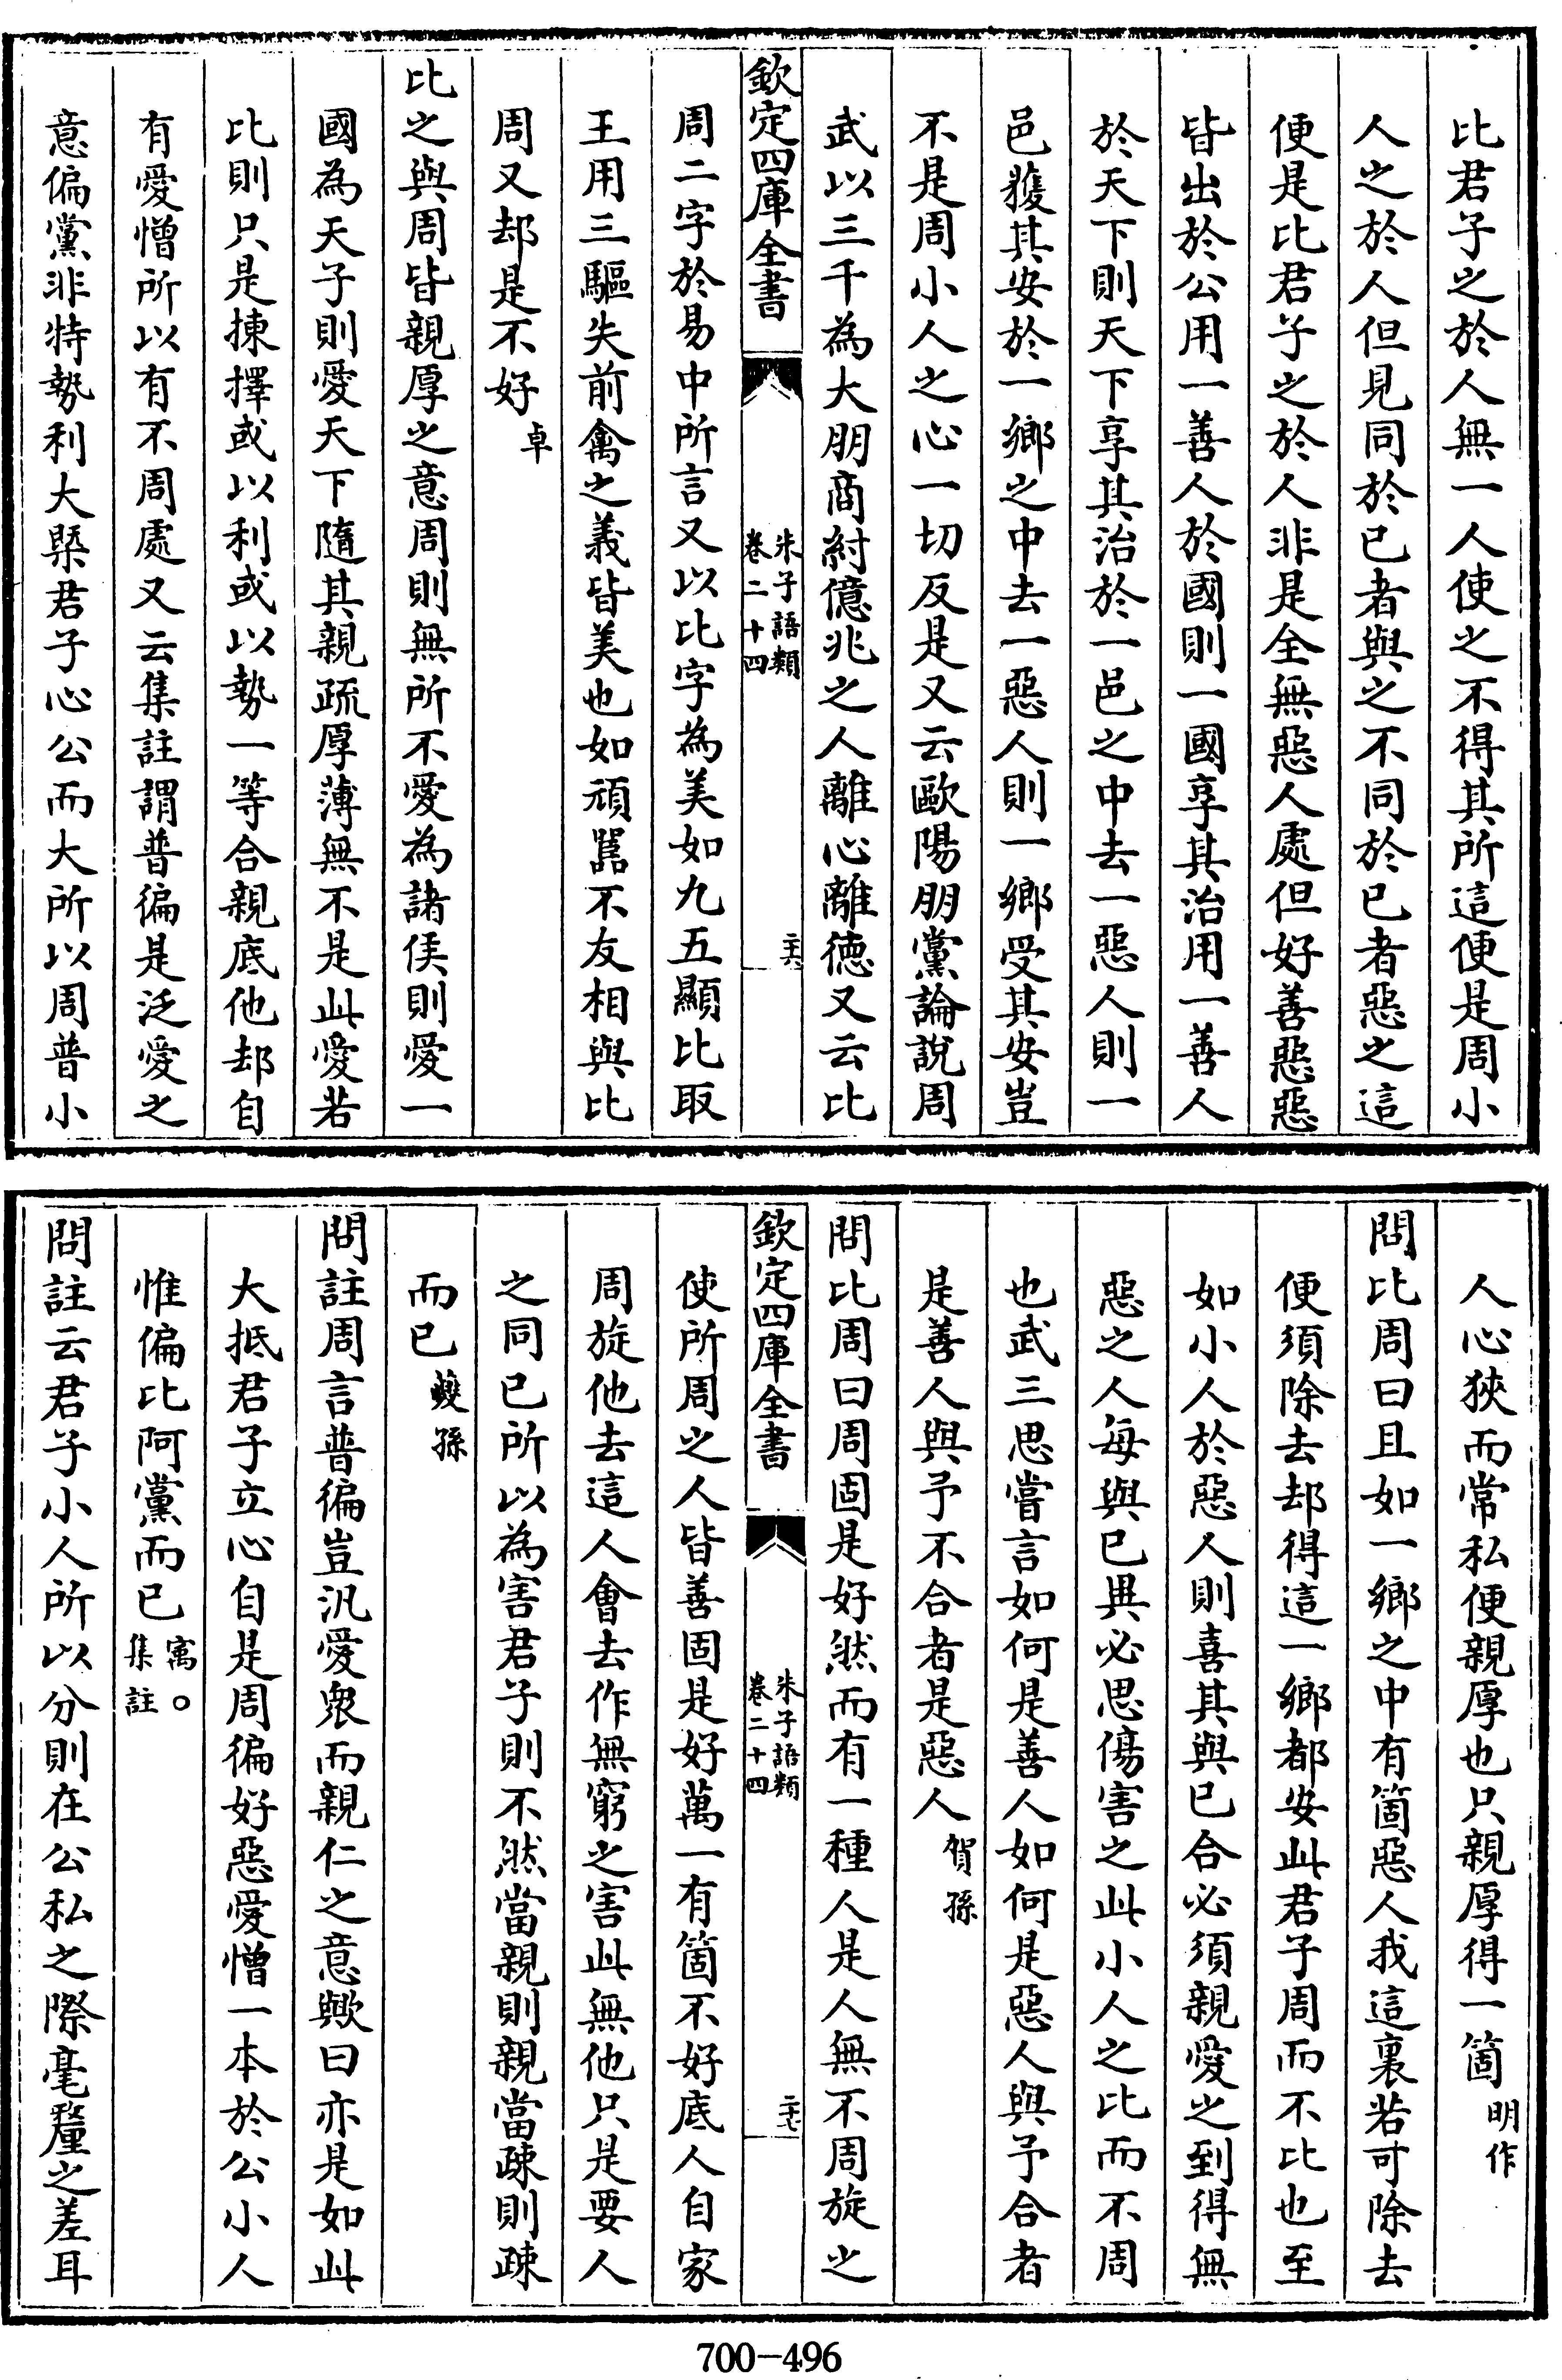 比君子之於人無一人使之不得其所這便是周小
人之於人但見同於已者與之不同於已者惡之這
便是比君子之於人非是全無惡人處但好善惡惡
皆出於公用一善人於國則一國享其治用一善人
於天下則天下享其治於一邑之中去一惡人則一
邑獲其安於一鄉之中去一惡人則一鄉受其安豈
不是周小人之心一切反是又云歐陽朋黨論說周
武以三千為大朋商紂億兆之人離心離德又云比
欽定四庫全書
朱子語類
卷二十四
二十六
周二字於易中所言又以比字為美如九五顯比取
王用三驅失前禽之義皆美也如頑嚚不友相與比
周又却是不好卓
比之與周皆親厚之意周則無所不愛為諸侯則愛一
國為天子則愛天下隨其親疏厚薄無不是此愛若
比則只是揀擇或以利或以勢一等合親底他却自
有愛憎所以有不周處又云集註謂普徧是泛愛之
意偏黨非特勢利大槩君子心公而大所以周普小
人心狹而常私便親厚也只親厚得一箇明作
問比周曰且如一鄉之中有箇惡人我這裏若可除去
便須除去却得這一鄉都安此君子周而不比也至
如小人於惡人則喜其與已合必須親愛之到得無
惡之人每與已異必思傷害之此小人之比而不周
也武三思嘗言如何是善人如何是惡人與予合者
是善人與予不合者是惡人賀孫
問比周曰周固是好然而有一種人是人無不周旋之
欽定四庫全書
朱子語類
卷二十四
二十七
使所周之人皆善固是好萬一有箇不好底人自家
周旋他去這人會去作無窮之害此無他只是要人
之同已所以為害君子則不然當親則親當疎則疎
而已夔孫
問註周言普徧豈汎愛衆而親仁之意歟曰亦是如此
大抵君子立心自是周徧好惡愛憎一本於公小人
惟偏比阿黨而已寓○集註
問註云君子小人所以分則在公私之際毫釐之差耳
700-496